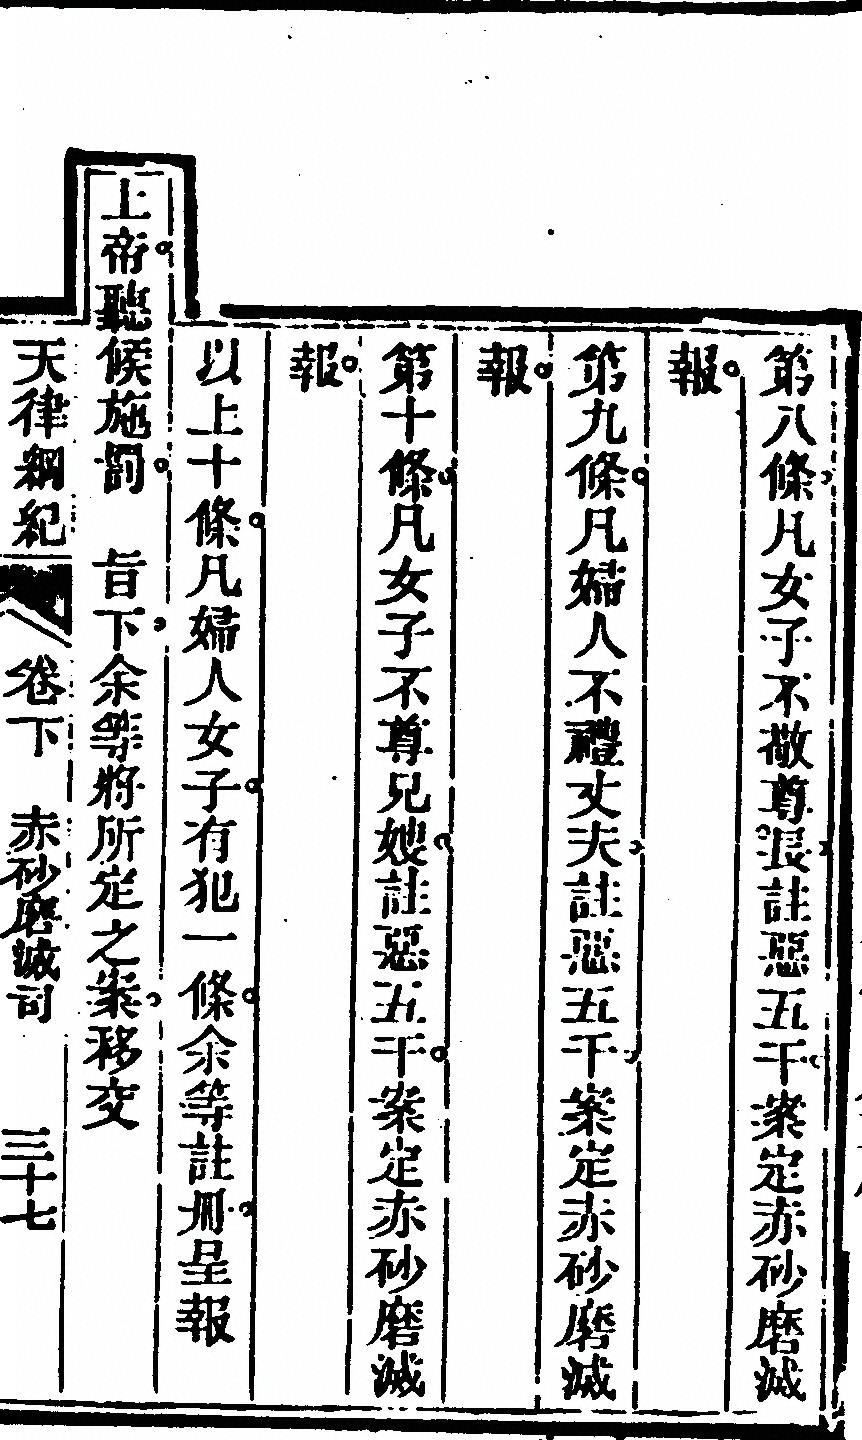 第八條凡女子不敬尊長註惡五千案定赤砂磨滅
報
第九條凡婦人不禮丈夫註惡五千案定赤砂磨滅
報
第十條凡女子不尊兄嫂註惡五千案定赤砂磨滅
報
以上十條凡婦人女子有犯一條余等註冊呈報
上帝聽候施罰 旨下余等將所定之案移交
天律綱紀 卷下 赤砂磨滅司 三十七